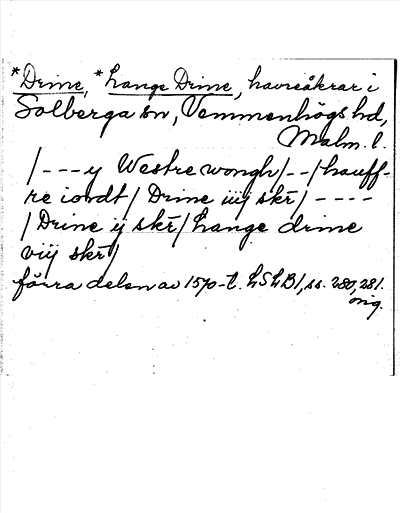 *Drine, *Lange Drine, havreåkrar i
Solberga sn, Vemmenhögs hd,
Malm. l.
/---y Westre wongh/--/hauff-
re iordt/ Drine iiij skr̄/----
/Drine ij skr̄/Lange drine
viij skr̄/
förra delen av 1570-t. LSLB1, ss. 280, 281.
orig.